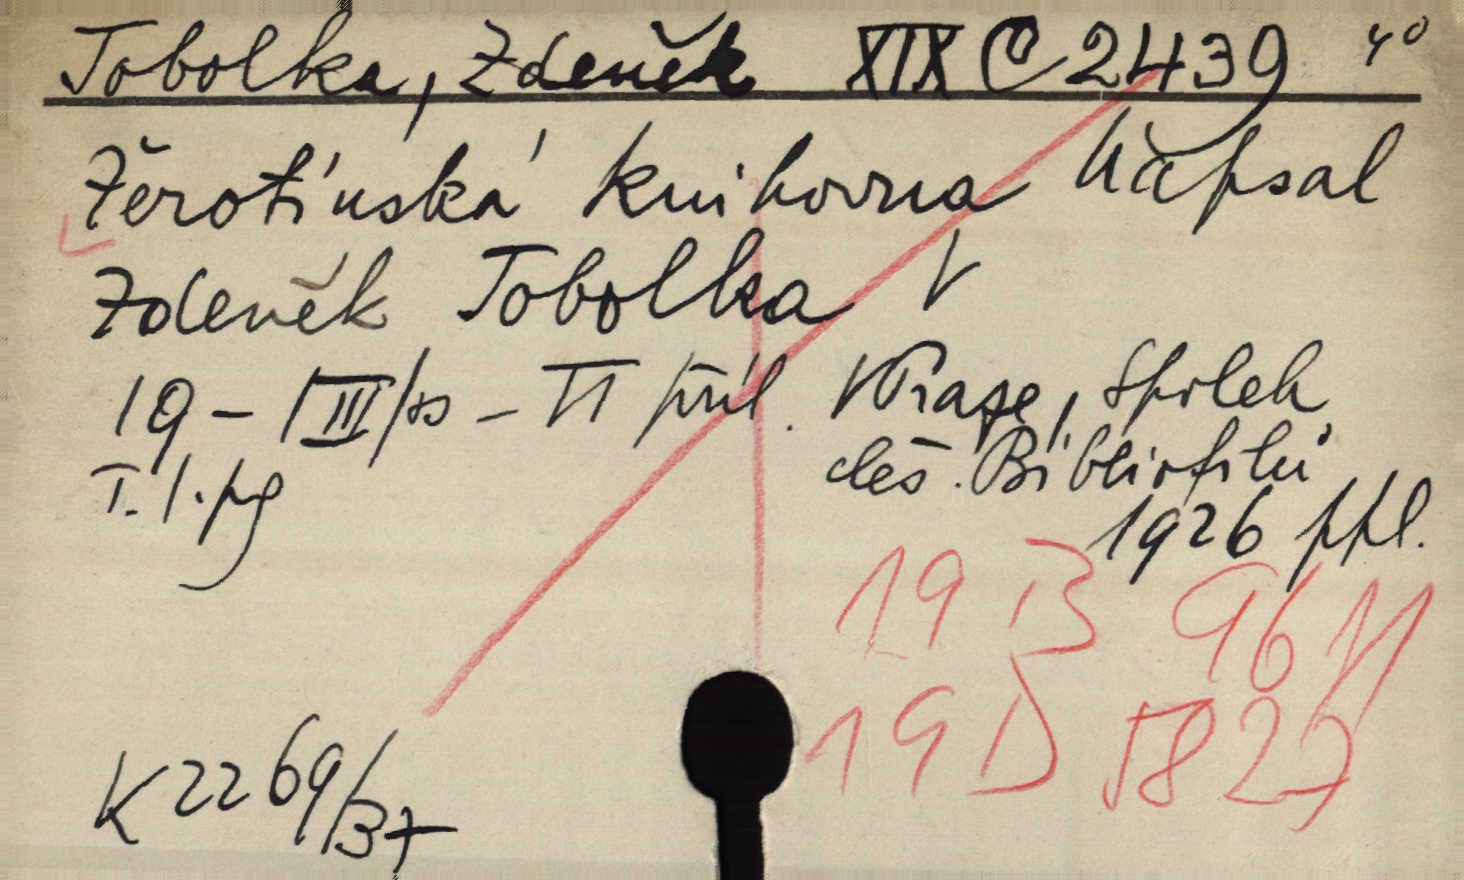 Tobolka, Zdeněk XIX C 2439 4°
Žerotínská knihovna Napsal
Zdeněk Tobolka V
19 - |III| - II příl. V Praze, Spolek
T. 1. pg čes. Bibliofilů
1926 ppl.
19 B 9611
19 D 5827
K 2269/37